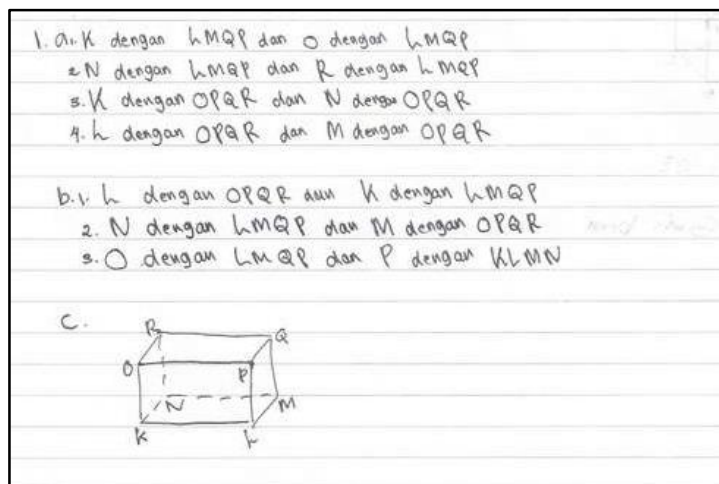 1. a. 1. K dengan LMQP dan O dengan LMQP
2 N dengan LMQP dan R dengan LMQP
3. K dengan OPQR dan N dengan OPQR
4. L dengan OPQR dan M dengan OPQR
b. 1. L dengan OPQR dan K dengan LMQP
2. N dengan LMQP dan M dengan OPQR
3. O dengan LMQP dan P dengan KLMN
C.
R Q
O P
N M
K L